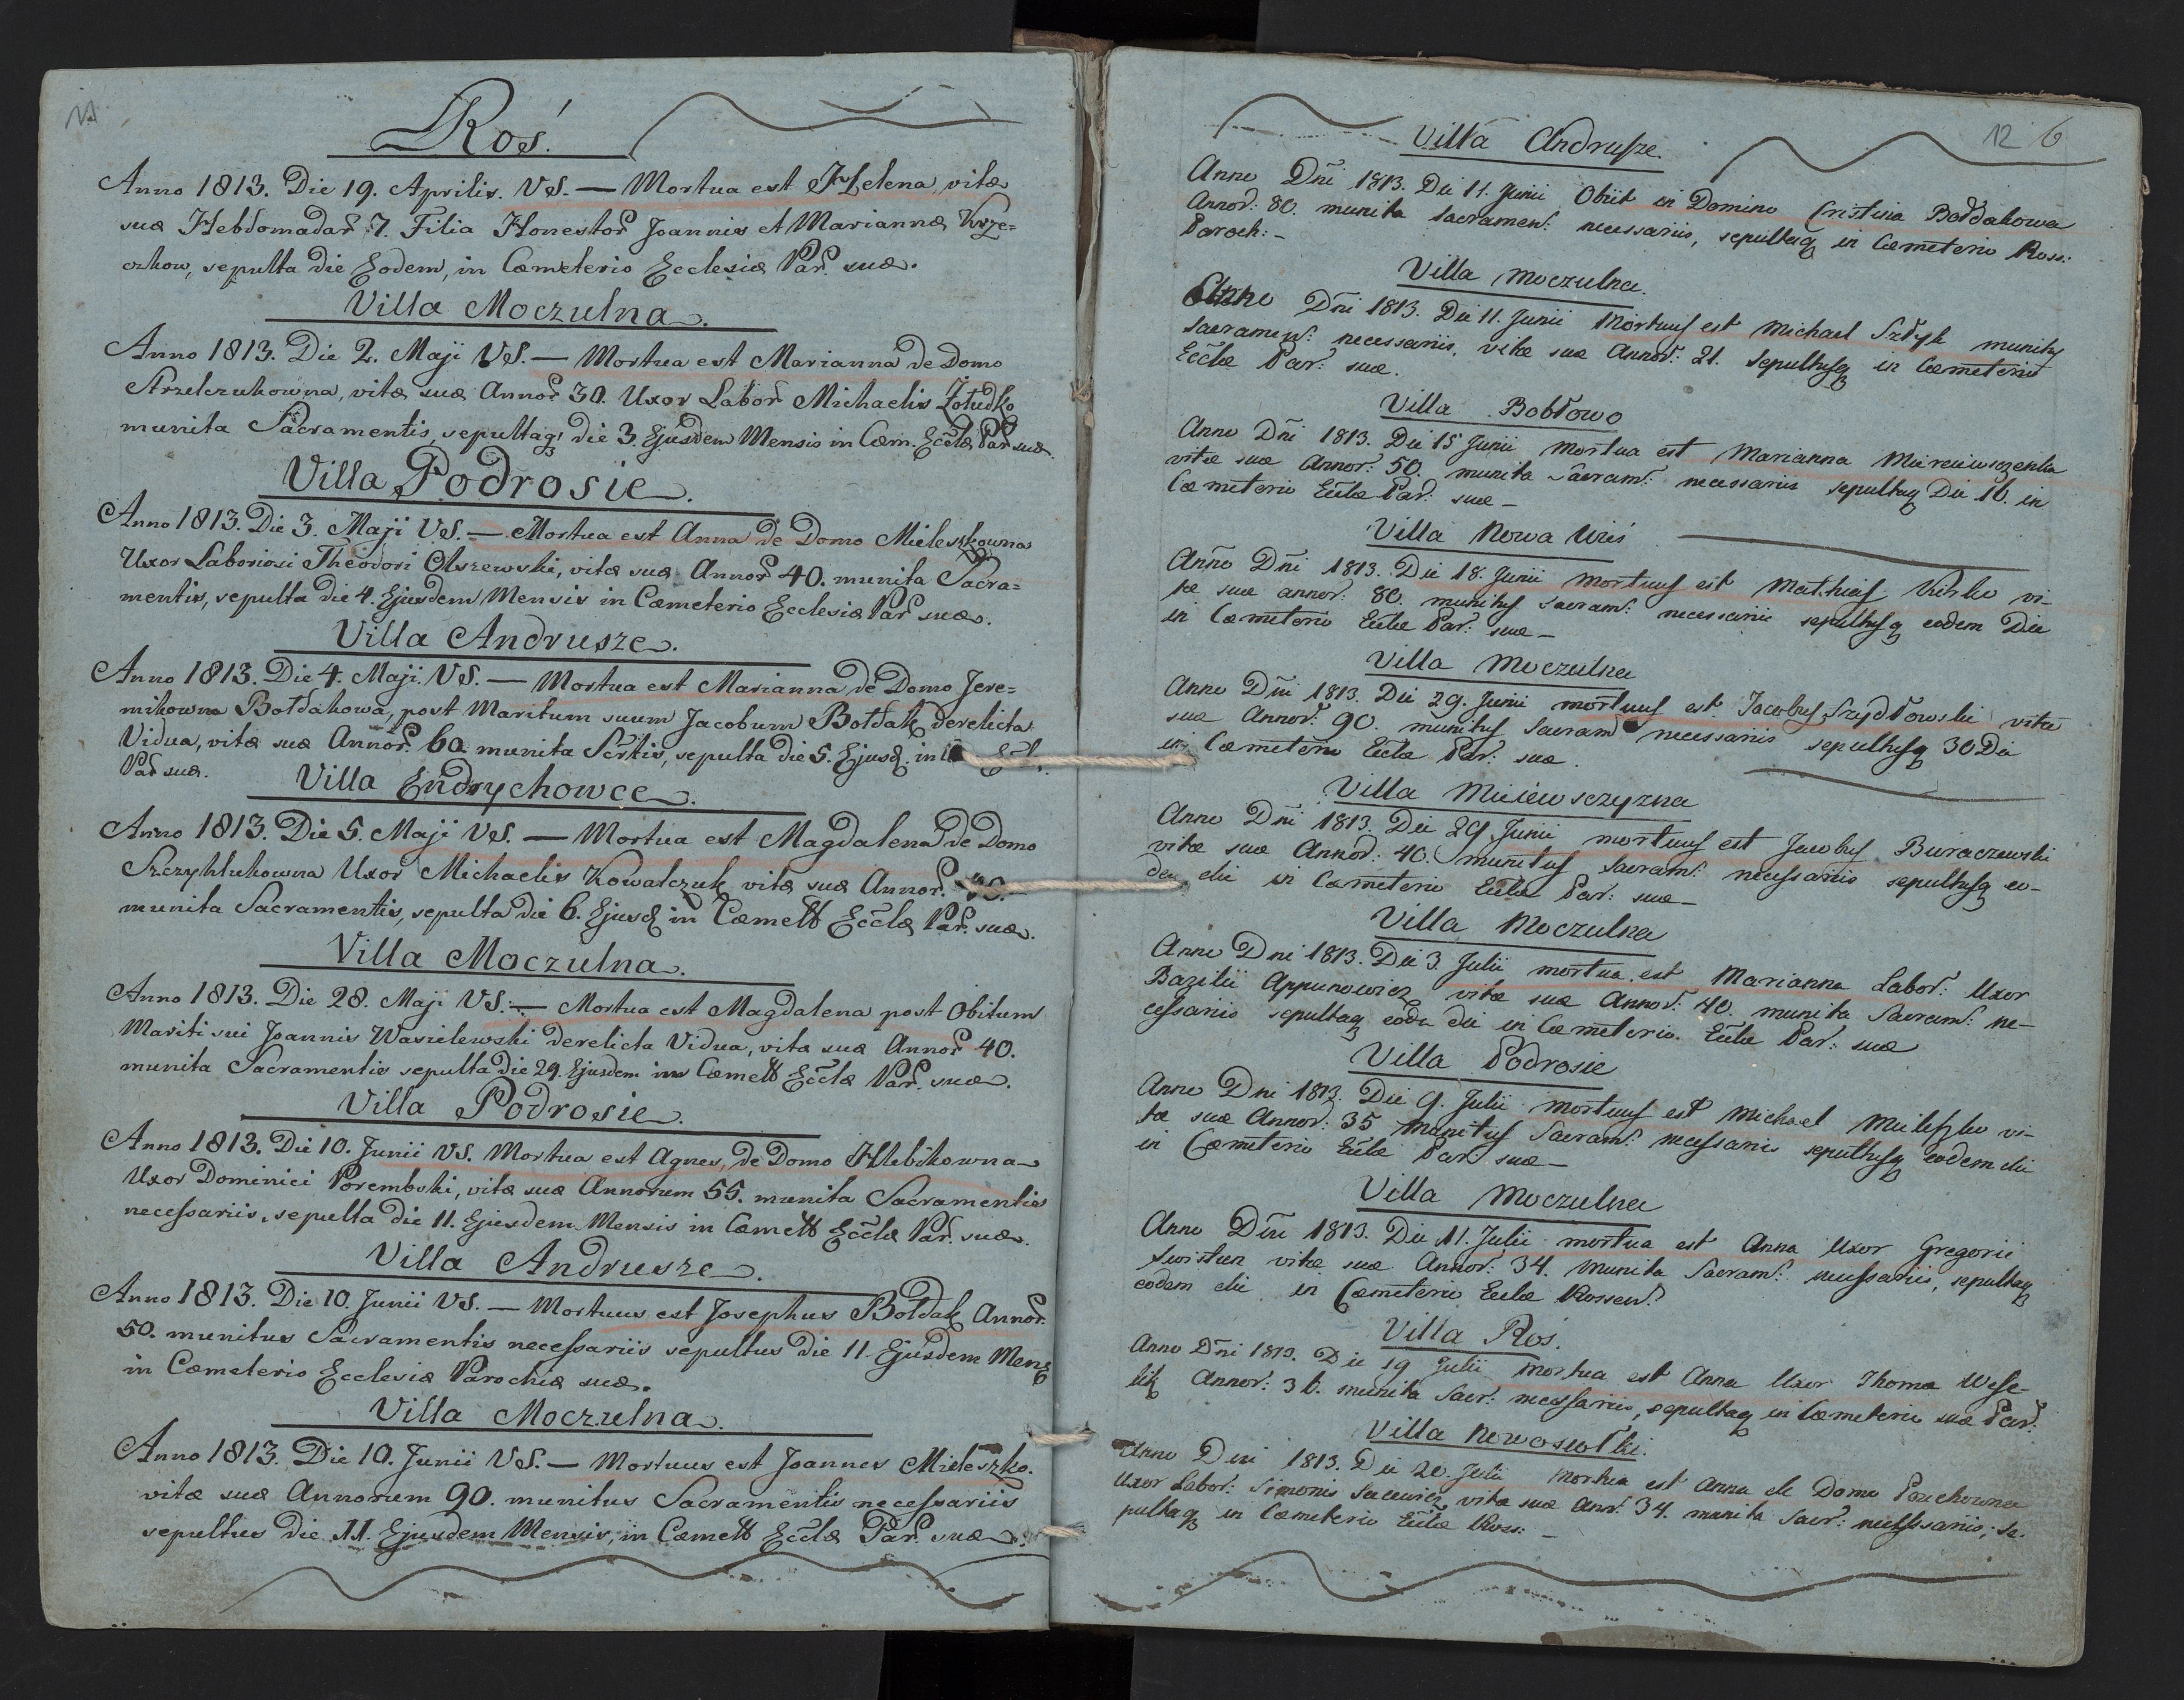 Roś.
Anno 1813. Die 19. Aprilis. VS. — Mortua est Helena, vitæ
suæ Hebdomadar 7. Filia Honestor Joannis et Mariannæ
czkow, sepulta die Eodem, in Cœmeterio Ecclesiæ Par. suæ.
Villa Moczulna.
Anno 1813. Die 2. Maji VS. — Mortua est Marianna de Domo
Strzelczukowna, vitæ suæ Annor 30. Uxor Labor Michaelis Żołudko
munita Sacramentis, sepultaq; die 3. Ejusdem Mensis in Cœm. Eccłæ Par suæ.
Villa Podrosie.
Anno 1813. Die 3. Maji VS. — Mortua est Anna de Domo Mieleszkowna
Uxor Laboriosi Theodori Olszewski, vitæ suæ Annor 40. munita Sacra=
mentis, sepulta die 4. Ejusdem Mensis in Cœmeterio Ecclesiæ Par suæ.
Villa Andrusze.
Anno 1813. Die 4. Maji. VS. — Mortua est Marianna de Domo Jere=
mikowna Bołdakowa, post Maritum suum Jacobum Bołdak derelicta
Vidua, vitæ suæ Annor. 60. munita Scrtis, sepulta die 5. Ejusd. in
Par suæ.
Villa Endrychowce.
Anno 1813. Die 5. Maji VS. — Mortua est Magdalena de Domo
Szczyhlukowna Uxor Michaelis Kowalczuk vitæ suæ Annor.
munita Sacramentis, sepulta die 6. Ejusd in Cœmett Eccłæ Par. suæ.
Villa Moczulna.
Anno 1813. Die 28. Maji VS. — Mortua est Magdalena post Obitum
Mariti sui Joannis Wasilewski derelicta Vidua, vita suæ Annor 40.
munita Sacramentis sepulta die 29. Ejusdem in Cœmett Eccłæ Par. suæ.
Villa Podrosie.
Anno 1813. Die 10. Junii VS. Mortua est Agnes, de Domo Hlebikowna
Uxor Dominici Porembski, vitæ suæ Annorum 55. munita Sacramentis
necessariis, sepulta die 11. Ejusdem Mensis in Cœmett Eccłæ Par. suæ.
Villa Andrusze.
Anno 1813. Die 10. Junii VS. — Mortuus est Josephus Bołdak Annor.
50. munitus Sacramentis necessariis sepultus die 11 Ejusdem Mens
in Cœmeterio Ecclesiæ Parochiæ suæ.
Villa Moczulna.
Anno 1813. Die 10. Junii VS. — Mortuus est Joannes Mieleszko.
vitæ suæ Annorum 90. munitus Sacramentis necessariis
sepultus die 11. Ejusdem Mensis, in Cœmett Eccłæ Par. suæ.
12 6
Villa Andrusze.
Anno Dni 1813. Die 11. Junii Obiit in Domino Cristina Bołdakowa
Annor: 80. munita Sacrament: necessariis, sepultaq in Cœmeterio Ross:
Paroch: –
Villa Moczulna.
Anno Dni 1813. Die 11. Junii Mortuus est Michael Szłyk munitus
Sacrament: necessariis, vitæ suæ Annor: 21. Sepultusq in Cœmeterio
Eccłæ Par: suæ.
Villa Bobłowo
Anno Dni 1813. Die 15 Junii Mortua est Marianna
vitæ suæ Annor: 50. munita Sacram: necessariis sepultaq Die 16. in
Cœmeterio Eccłæ Par: suæ –
Villa Nowa Wieś
Anno Dni 1813. Die 18. Junii mortuus est Mathias vi-
tæ suæ annor: 80. munitus Sacram: necessariis sepultusq eodem Die
in Cœmeterio Eccłæ Par: suæ –
Villa Moczulna
Anno Dni 1813. Die 29. Junii mortuus est Jacobus Szydłowski vitæ
suæ Annor: 90. munitus Sacram necessariis sepultusq 30 Die
in Cœmeterio Eccłæ Par: suæ.
Villa Miciewszczyzna
Anno Dni 1813. Die 29 Junii mortuus est Jacobus Buraczewski
vitæ suæ Annor: 40. munitus Sacram: necessariis sepultusq eo-
dem die in Cœmeterio Eccłæ Par: suæ –
Villa Moczulna
Anno Dni 1813. Die 3 Julii mortua est Marianna Labor: Uxor
Bazilii Appunowicz vitæ suæ Annor: 40. munita Sacram: ne-
cessariis sepultaq eodē die in Cœmeterio Eccłæ Par: suæ
Villa Podrosie
Anno Dni 1813. Die 9. Julii mortuus est Michael Mileszko vi-
tæ suæ Annor: 35 munitus Sacram: necessariis sepultusq eodem die
in Cœmeterio Eccłæ Par: suæ –
Villa Moczulna
Anno Dni 1813. Die 11. Julii mortua est Anna Uxor Gregorii
Swistun vitæ suæ Annor: 34. munita Sacram: necessariis, sepultaq
eodem die in Cœmeterio Eccłæ Rossen:
Villa Roś.
Anno Dni 1813. Die 19 Julii Mortua est Anna Uxor Thomæ Wese-
lik Annor: 36. munita Sacr: necessariis, sepultaq in Cœmeterio suæ Par:
Villa Nowosiołki.
Anno Dni 1813. Die 20. Julii Mortua est Anna de Domo
Uxor Labor: Simonis vitæ suæ Ann: 34. munita Sacr: necessariis, se-
pultaq in Cœmeterio Eccłæ Ross: –